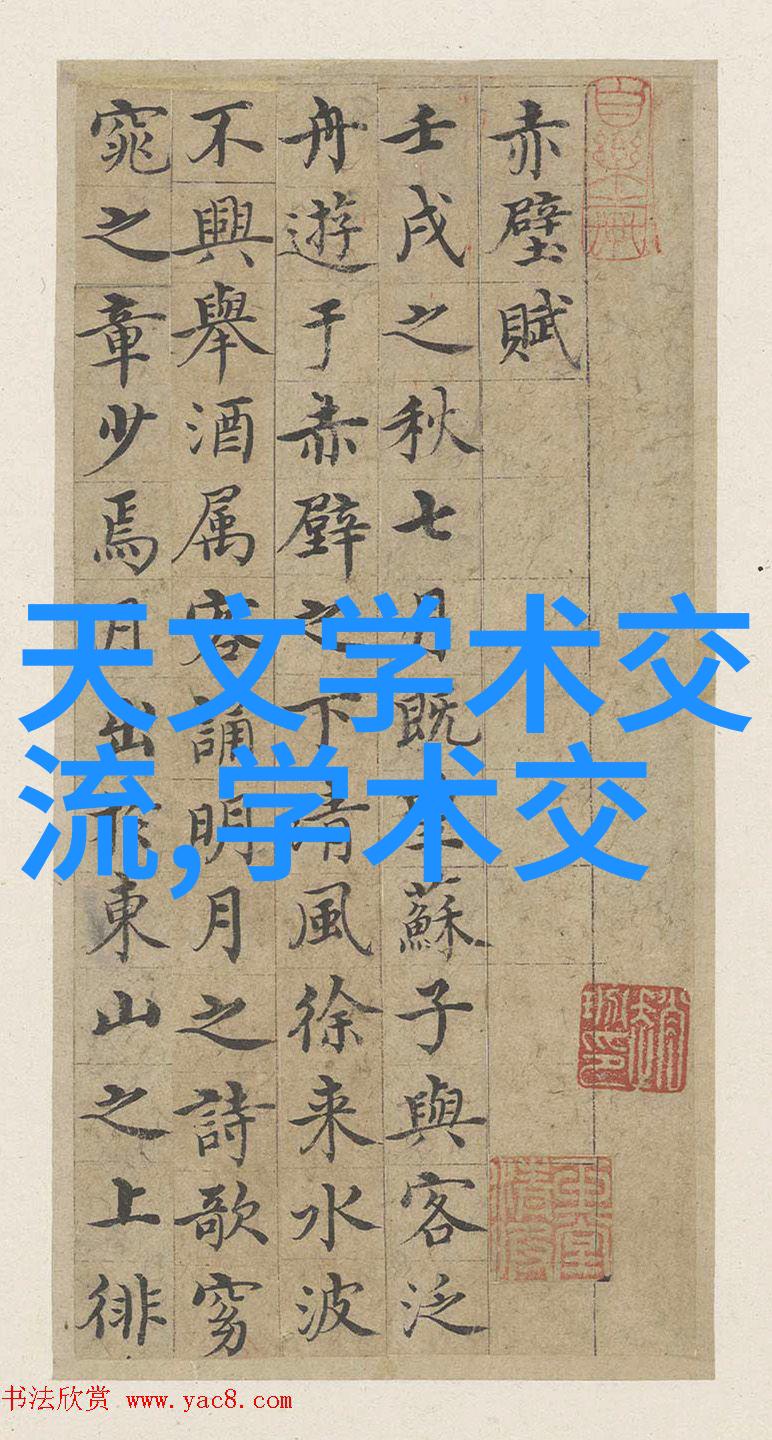 赤壁賦
壬戌之秋七月既望蘇子與客泛
舟遊于赤壁之下清風徐来水波
不興舉酒属客誦明月之詩歌窈
窕之章少焉月出於東山之上徘
天文学术交
流,学术交
书法欣赏 www.yac8.com